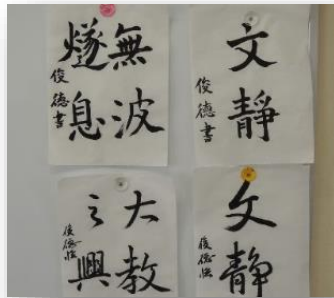 無波
燧息
俊德書
文靜
俊德書
大教
之興
俊德臨
文靜
俊德臨